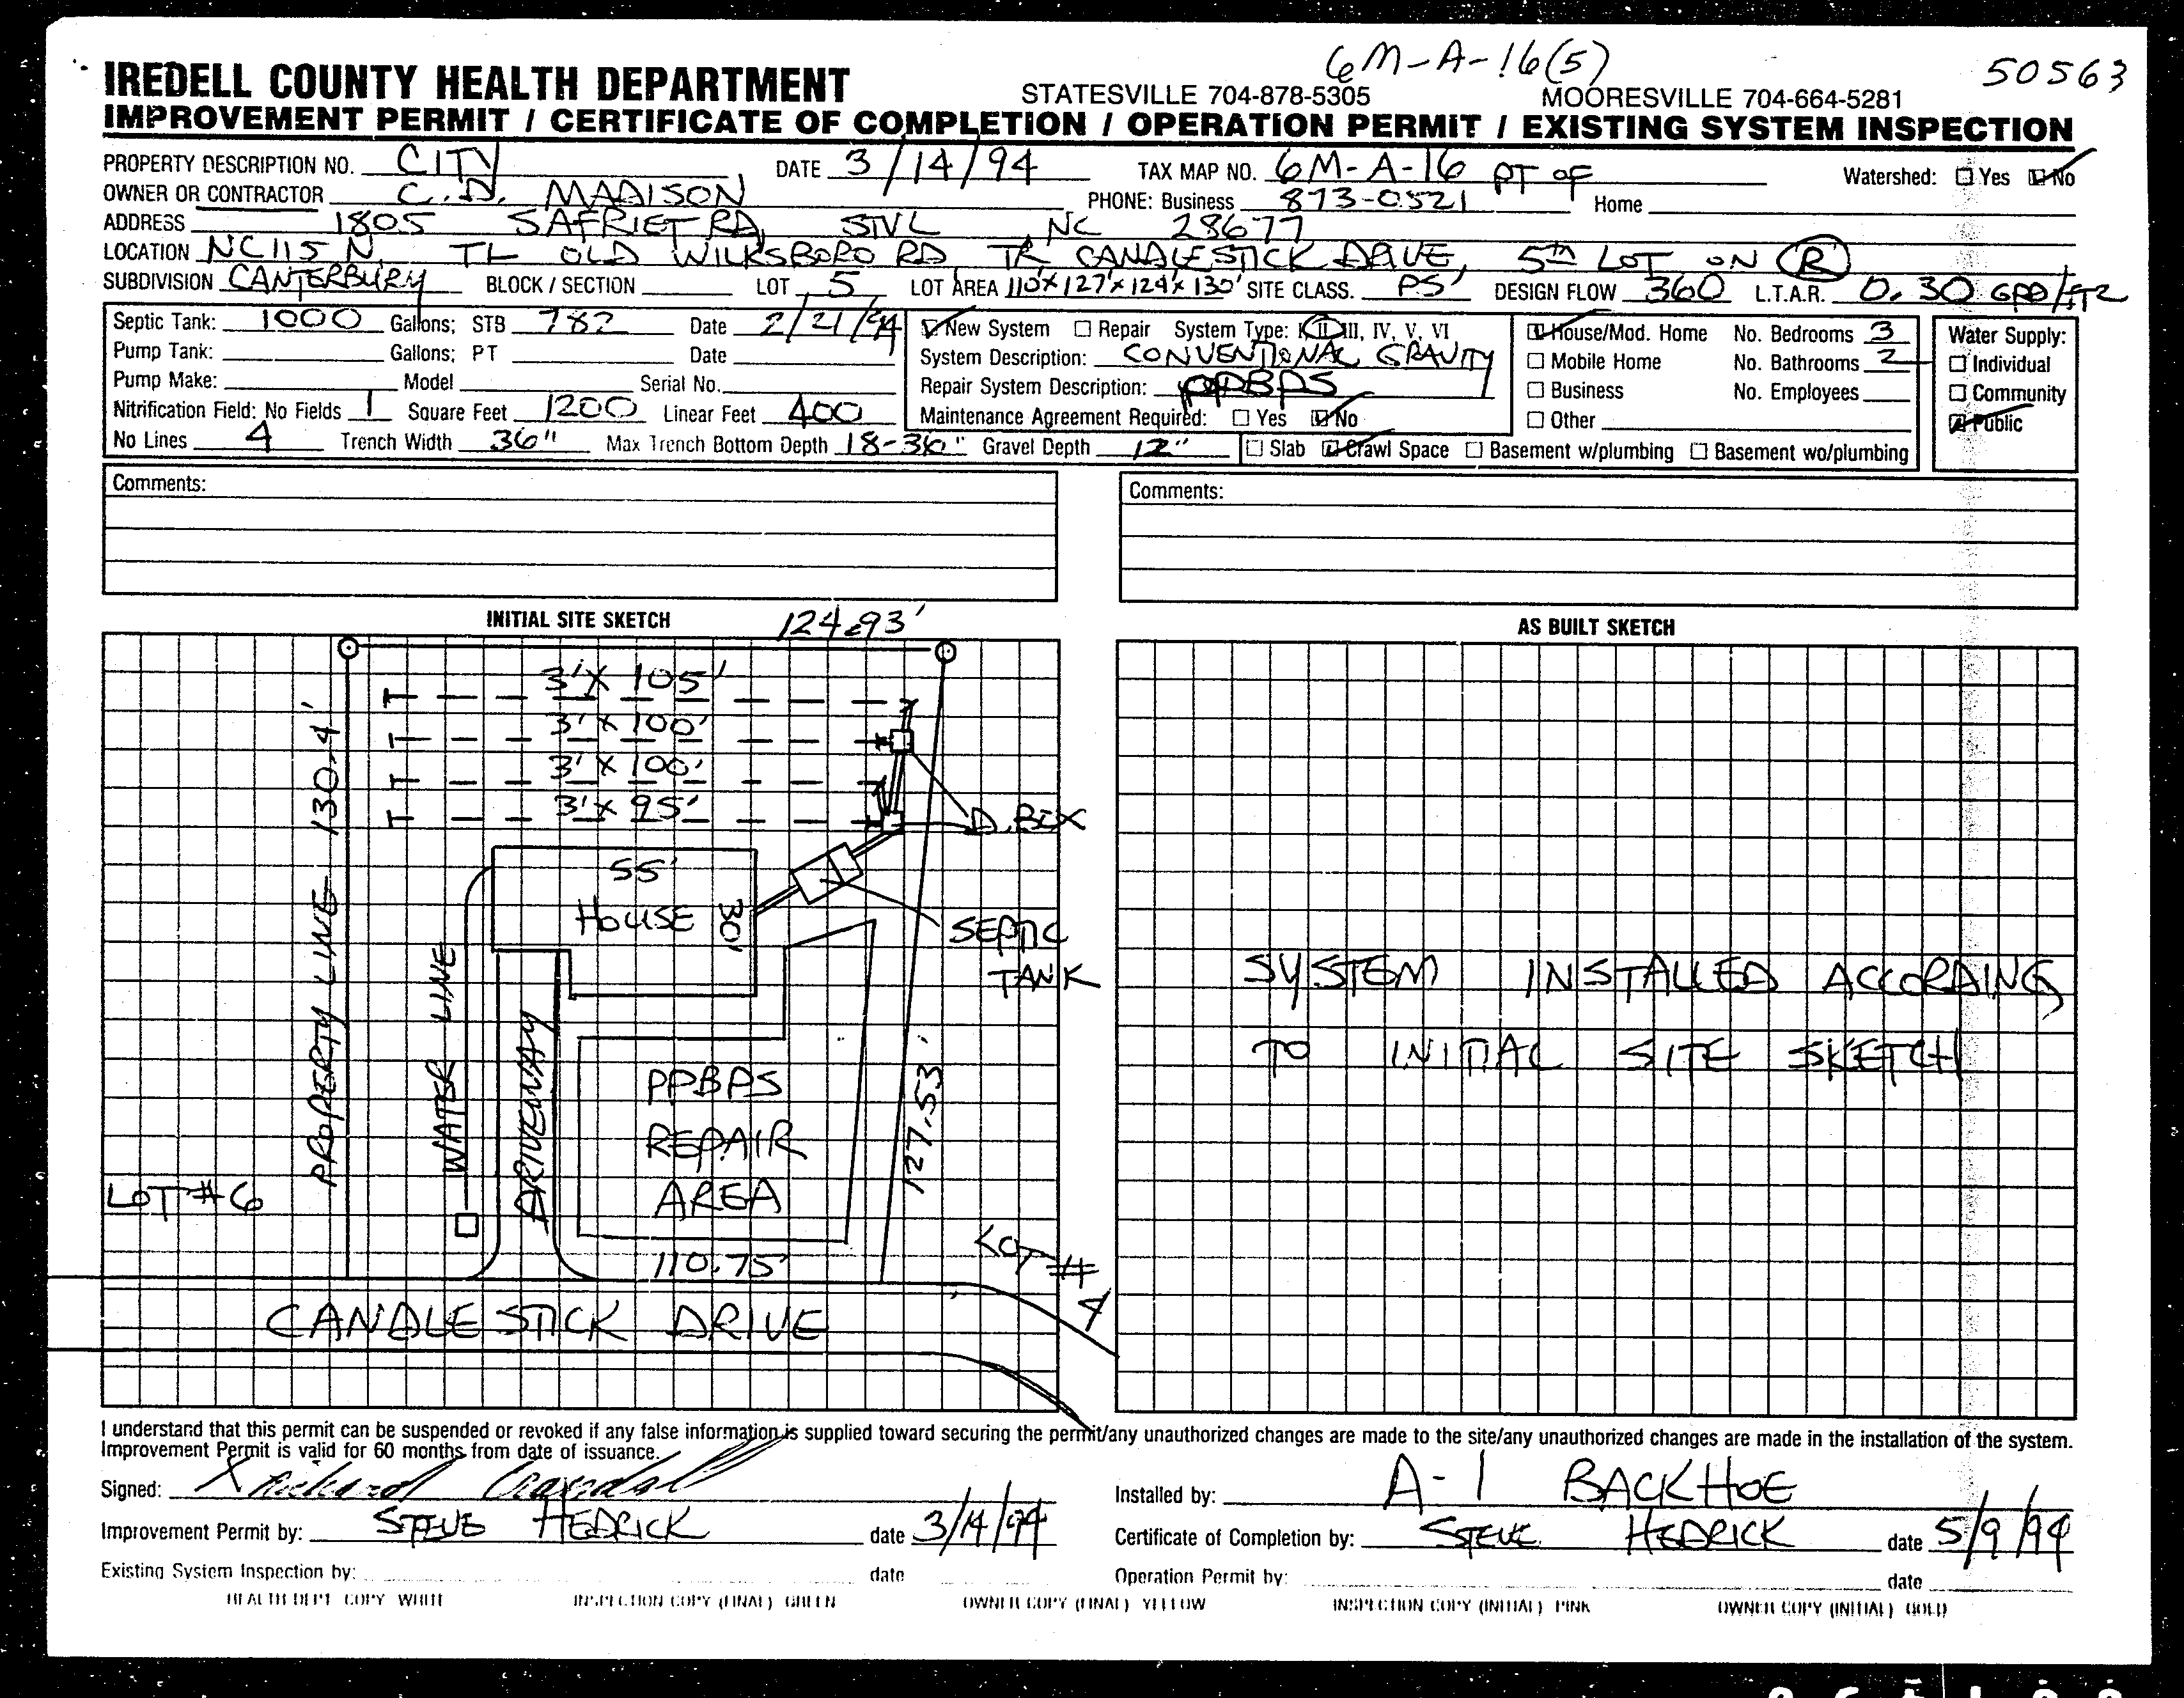 6M-A-16(5)
50563
IREDELL COUNTY HEALTH DEPARTMENT STATESVILLE 704-878-5305 MOORESVILLE 704-664-5281
IMPROVEMENT PERMIT / CERTIFICATE OF COMPLETION / OPERATION PERMIT / EXISTING SYSTEM INSPECTION
PROPERTY DESCRIPTION NO. CITY DATE 3/14/94 TAX MAP NO. 6M-A-16 PT OF Watershed: Yes No
OWNER OR CONTRACTOR C.D. MADISON PHONE: Business 873-0521 Home
ADDRESS 1805 SAFRIET RD, STVL NC 28677
LOCATION NC 115 N, TL OLD WILKSBORO RD TR CANDLESTICK DRIVE, 5th LOT ON R
SUBDIVISION CANTERBURY BLOCK / SECTION LOT 5 LOT AREA 110'x127'x124'x130' SITE CLASS. PS DESIGN FLOW 360 L.T.A.R. 0.30 GPD/FT2
Septic Tank: 1000 Gallons; STB 782 Date 2/21/94 New System Repair System Type: I, II, III, IV, V, VI House/Mod. Home No. Bedrooms 3 Water Supply:
Pump Tank: Gallons; PT Date System Description: CONVENTIONAL GRAVITY Mobile Home No. Bathrooms 2 Individual
Pump Make: Model Serial No. Repair System Description: PPBPS Business No. Employees Community
Nitrification Field: No Fields 1 Square Feet 1200 Linear Feet 400 Maintenance Agreement Required: Yes No Other Public
No Lines 4 Trench Width 36" Max Trench Bottom Depth 18-36" Gravel Depth 12" Slab Crawl Space Basement w/plumbing Basement wo/plumbing
Comments: Comments:
INITIAL SITE SKETCH 124.93' AS BUILT SKETCH
3' X 105'
3' X 100'
3' X 100'
3' X 95'
D. BOX
PROPERTY LINE 130.4'
55'
HOUSE 30'
SEPTIC
TANK
WATER LINE
DRIVEWAY
PPBPS
REPAIR
AREA
127.53'
110.75'
LOT #6
LOT #
4
CANDLESTICK DRIVE
SYSTEM INSTALLED ACCORDING
TO INITIAL SITE SKETCH
I understand that this permit can be suspended or revoked if any false information is supplied toward securing the permit/any unauthorized changes are made to the site/any unauthorized changes are made in the installation of the system.
Improvement Permit is valid for 60 months from date of issuance.
Signed: X Richard Installed by: A-1 BACKHOE
Improvement Permit by: STEVE HEDRICK date 3/14/94 Certificate of Completion by: STEVE HEDRICK date 5/9/94
Existing System Inspection by: date Operation Permit by: date
HEALTH DEPT COPY WHITE INSPECTION COPY (FINAL) GREEN OWNER COPY (FINAL) YELLOW INSPECTION COPY (INITIAL) PINK OWNER COPY (INITIAL) GOLD